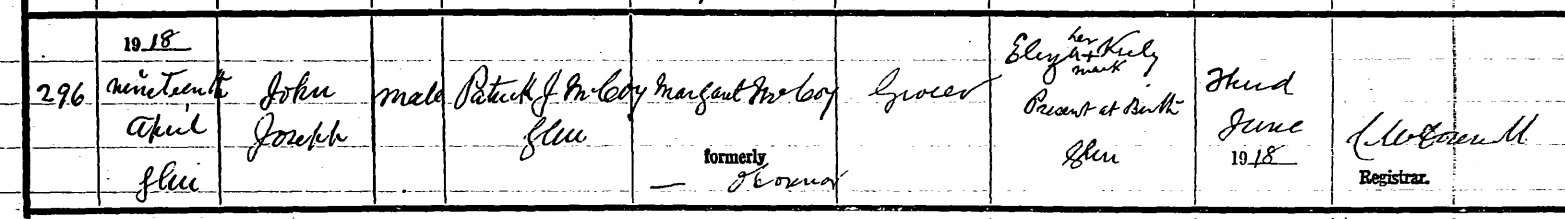 296
1918
nineteenth
April
Glin
John
Joseph
male
Patrick J McCoy
Glin
Margaret McCoy
formerly
— O'Connor
Grocer
her
Eliza + Kiely
mark
Present at Birth
Glin
Third
June
1918
Registrar.